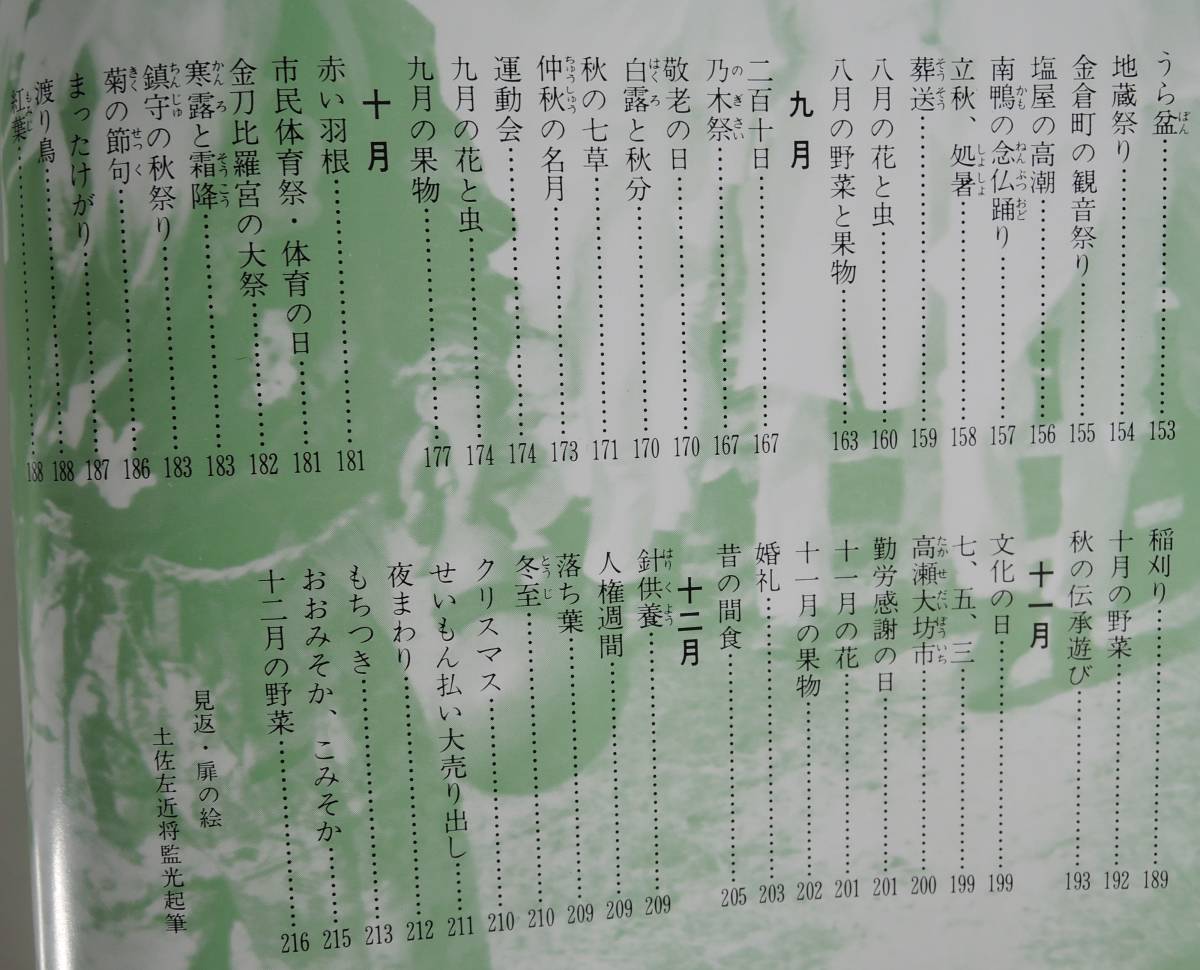 うら盆……………………153
地蔵祭り……………………154
金倉町の観音祭り……………………155
塩屋の高潮……………………156
南鴨の念仏踊り……………………157
立秋、処暑……………………158
葬送……………………159
八月の花と虫……………………160
八月の野菜と果物……………………163
九月
二百十日……………………167
乃木祭……………………167
敬老の日……………………170
白露と秋分……………………170
秋の七草……………………171
仲秋の名月……………………173
運動会……………………174
九月の花と虫……………………174
九月の果物……………………177
十月
赤い羽根……………………181
市民体育祭・体育の日……………………181
金刀比羅宮の大祭……………………182
寒露と霜降……………………183
鎮守の秋祭り……………………183
菊の節句……………………186
まったけがり……………………187
渡り鳥……………………188
紅葉……………………188
稲刈り……………………189
十月の野菜……………………192
秋の伝承遊び……………………193
十一月
文化の日……………………199
七、五、三……………………199
高瀬大坊市……………………200
勤労感謝の日……………………201
十一月の花……………………201
十一月の果物……………………202
婚礼……………………203
昔の間食……………………205
十二月
針供養……………………209
人権週間……………………209
落ち葉……………………209
冬至……………………210
クリスマス……………………210
せいもん払い大売り出し……………………211
夜まわり……………………212
もちつき……………………213
おおみそか、こみそか……………………215
十二月の野菜……………………216
見返・扉の絵
土佐左近将監光起筆